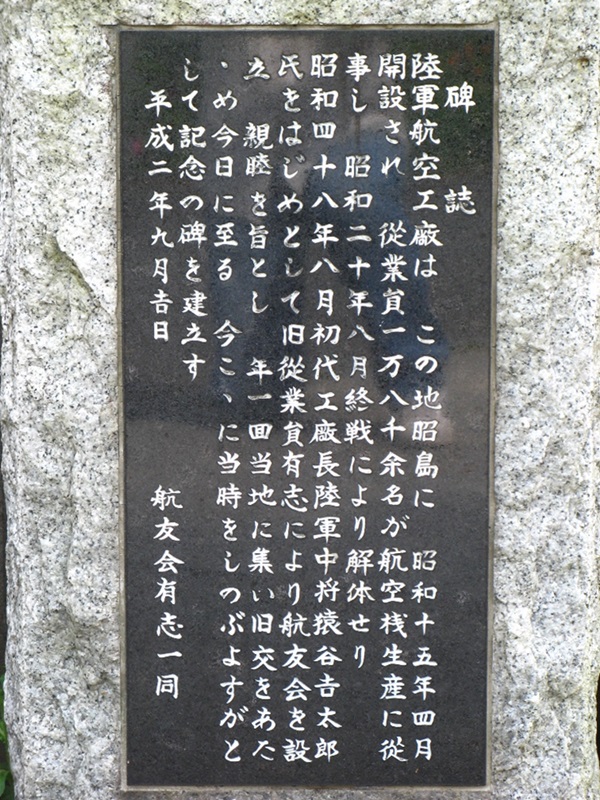 碑誌
陸軍航空工廠は　この地昭島に　昭和十五年四月
開設され　従業員一万八千余名が航空桟生産に従
事し　昭和二十年八月終戦により解体せり
昭和四十八年八月初代工廠長陸軍中将猿谷吉太郎
氏をはじめとして旧従業員有志により航友会を設
立　親睦を旨とし　年一回当地に集い旧交をあた
ゝめ今日に至る　今こゝに当時をしのぶよすがと
して記念の碑を建立す
平成二年九月吉日　航友会有志一同